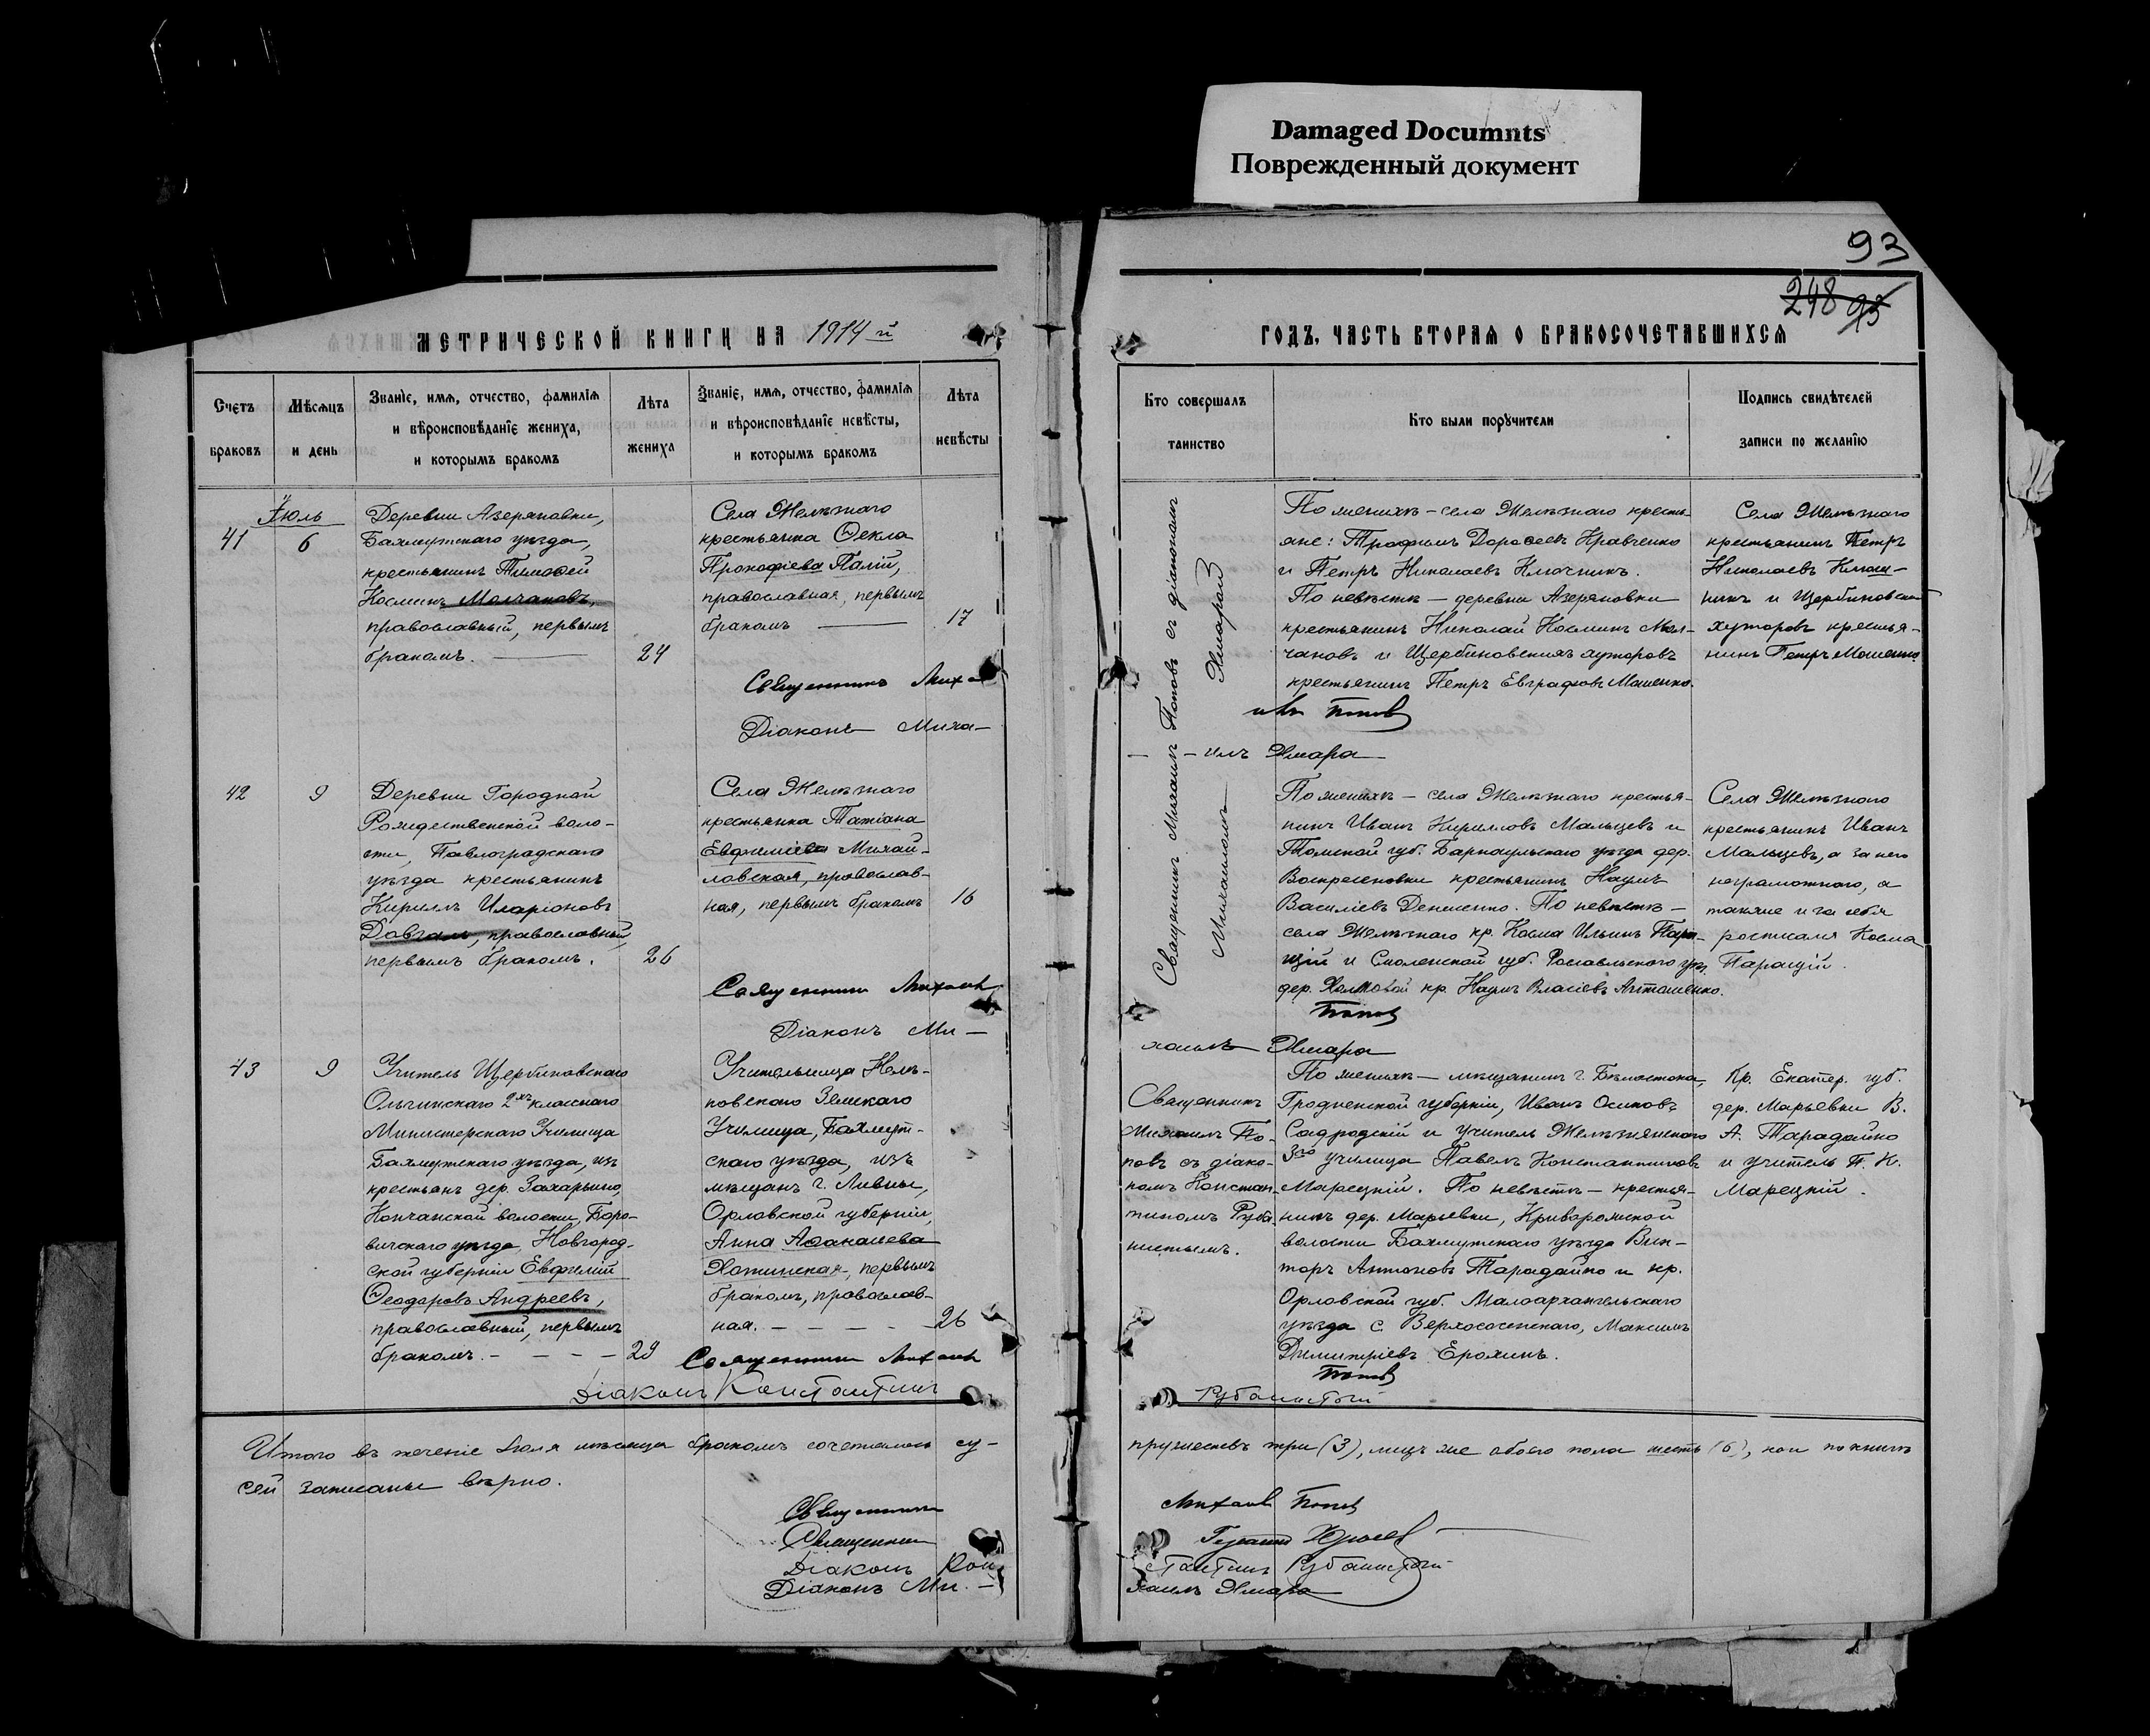 Damaged Documnts
Поврежденный документ
93
248 93
МЕТРИЧЕСКОЙ КНИГИ НА 1914 й
ГОДЪ, ЧАСТЬ ВТОРАЯ О БРАКОСОЧЕТАВШИХСЯ
Счетъ
браковъ
Мѣсяцъ
и день
Званіе, имя, отчество, фамилія
и вѣроисповѣданіе жениха,
и которымъ бракомъ
Лѣта
жениха
Званіе, имя, отчество, фамилія
и вѣроисповѣданіе невѣсты,
и которымъ бракомъ
Лѣта
невѣсты
Кто совершалъ
таинство
Кто были поручители
Подпись свидѣтелей
записи по желанію
Іюль
41
6
Деревни Азеряновки,
Бахмутскаго уѣзда,
крестьянинъ Тимоѳей
Косминъ Молчановъ,
православный, первымъ
бракомъ.
24
Села Желѣзнаго
крестьянка Ѳекла
Прокофіева Палій,
православная, первымъ
бракомъ
17
Священникъ Михаилъ Поповъ съ діакономъ
Михаиломъ Хмарой
По женихѣ – села Желѣзнаго кресть-
яне: Трофимъ Дороѳеевъ Кравченко
и Петръ Николаевъ Ключникъ.
По невѣстѣ – деревни Азеряновки
крестьянинъ Николай Косминъ Мол-
чановъ и Щербиновскихъ хуторовъ
крестьянинъ Петръ Евграфовъ Мошенко.
Села Желѣзнаго
крестьянинъ Петръ
Николаевъ Ключ-
никъ и Щербиновски
хуторовъ крестья-
нинъ Петръ Мошенко
Священникъ Миха
илъ Поповъ
Діаконъ Миха-
-илъ Хмара
42
9
Деревни Городной
Рождественской воло-
сти, Павлоградскаго
уѣзда крестьянинъ
Кириллъ Иларіоновъ
Довгаль, православный,
первымъ бракомъ.
26
Села Желѣзнаго
крестьянка Татіана
Евфиміева Михай-
ловская, православ-
ная, первымъ бракомъ
16
По женихѣ – села Желѣзнаго крестья-
нинъ Иванъ Кирилловъ Мальцевъ и
Томской губ. Барнаульскаго уѣзда дер.
Воскресеновки крестьянинъ Наумъ
Василіевъ Денисенко. По невѣстѣ –
села Желѣзнаго кр. Косма Ильинъ Пара-
щій и Смоленской губ. Рославльскаго уѣз.
дер. Холмовой кр. Наумъ Власіевъ Антошенко.
Села Желѣзнаго
крестьянинъ Иванъ
Мальцевъ, а за него
неграмотнаго, а
также и за себя
росписался Косма
Паращій.
Священникъ Михаилъ
Поповъ
Діаконъ Ми-
хаилъ Хмара
43
9
Учитель Щербиновскаго
Ольгинскаго 2хъ класснаго
Министерскаго Училища
Бахмутскаго уѣзда, изъ
крестьянъ дер. Захарьино,
Кончанской волости, Боро-
вичскаго уѣзда, Новгород-
ской губерніи Евфимій
Ѳеодоровъ Андреевъ,
православный, первымъ
бракомъ.
29
Учительница Нелѣ-
повскаго Земскаго
Училища, Бахмут-
скаго уѣзда, изъ
мѣщанъ г. Ливны,
Орловской губерніи,
Анна Аѳанасіева
Хотинская, первымъ
бракомъ, православ-
ная.
26
Священникъ
Михаилъ По-
повъ съ діако-
номъ Констан-
тиномъ Руба
нистымъ.
По женихѣ – мѣщанинъ г. Бѣлостока,
Гродненской губерніи, Иванъ Осиповъ
Садродскій и учитель Желѣзнянскаго
3го училища Павелъ Константиновъ
Марецкій. По невѣстѣ – крестья-
нинъ дер. Марьевки, Криворожской
волости Бахмутскаго уѣзда Вик-
торъ Антоновъ Тарадайко и кр.
Орловской губ. Малоархангельскаго
уѣзда с. Верхососенскаго, Максимъ
Димитріевъ Ерохинъ.
Кр. Екатер. губ.
дер. Марьевки В.
А. Тарадайко
и учитель П. К.
Марецкій.
Священникъ Михаилъ
Поповъ
Діаконъ Константинъ
Рубанистый
Итого въ теченіе Іюля мѣсяца бракомъ сочетались су-
пружествъ три (3), лицъ же обоего пола шесть (6), кои по книгѣ
сей записаны вѣрно.
Священникъ Михаилъ Поповъ
Священникъ
Діаконъ Кон
стантинъ Рубанистый
Діаконъ Ми-
хаилъ Хмара